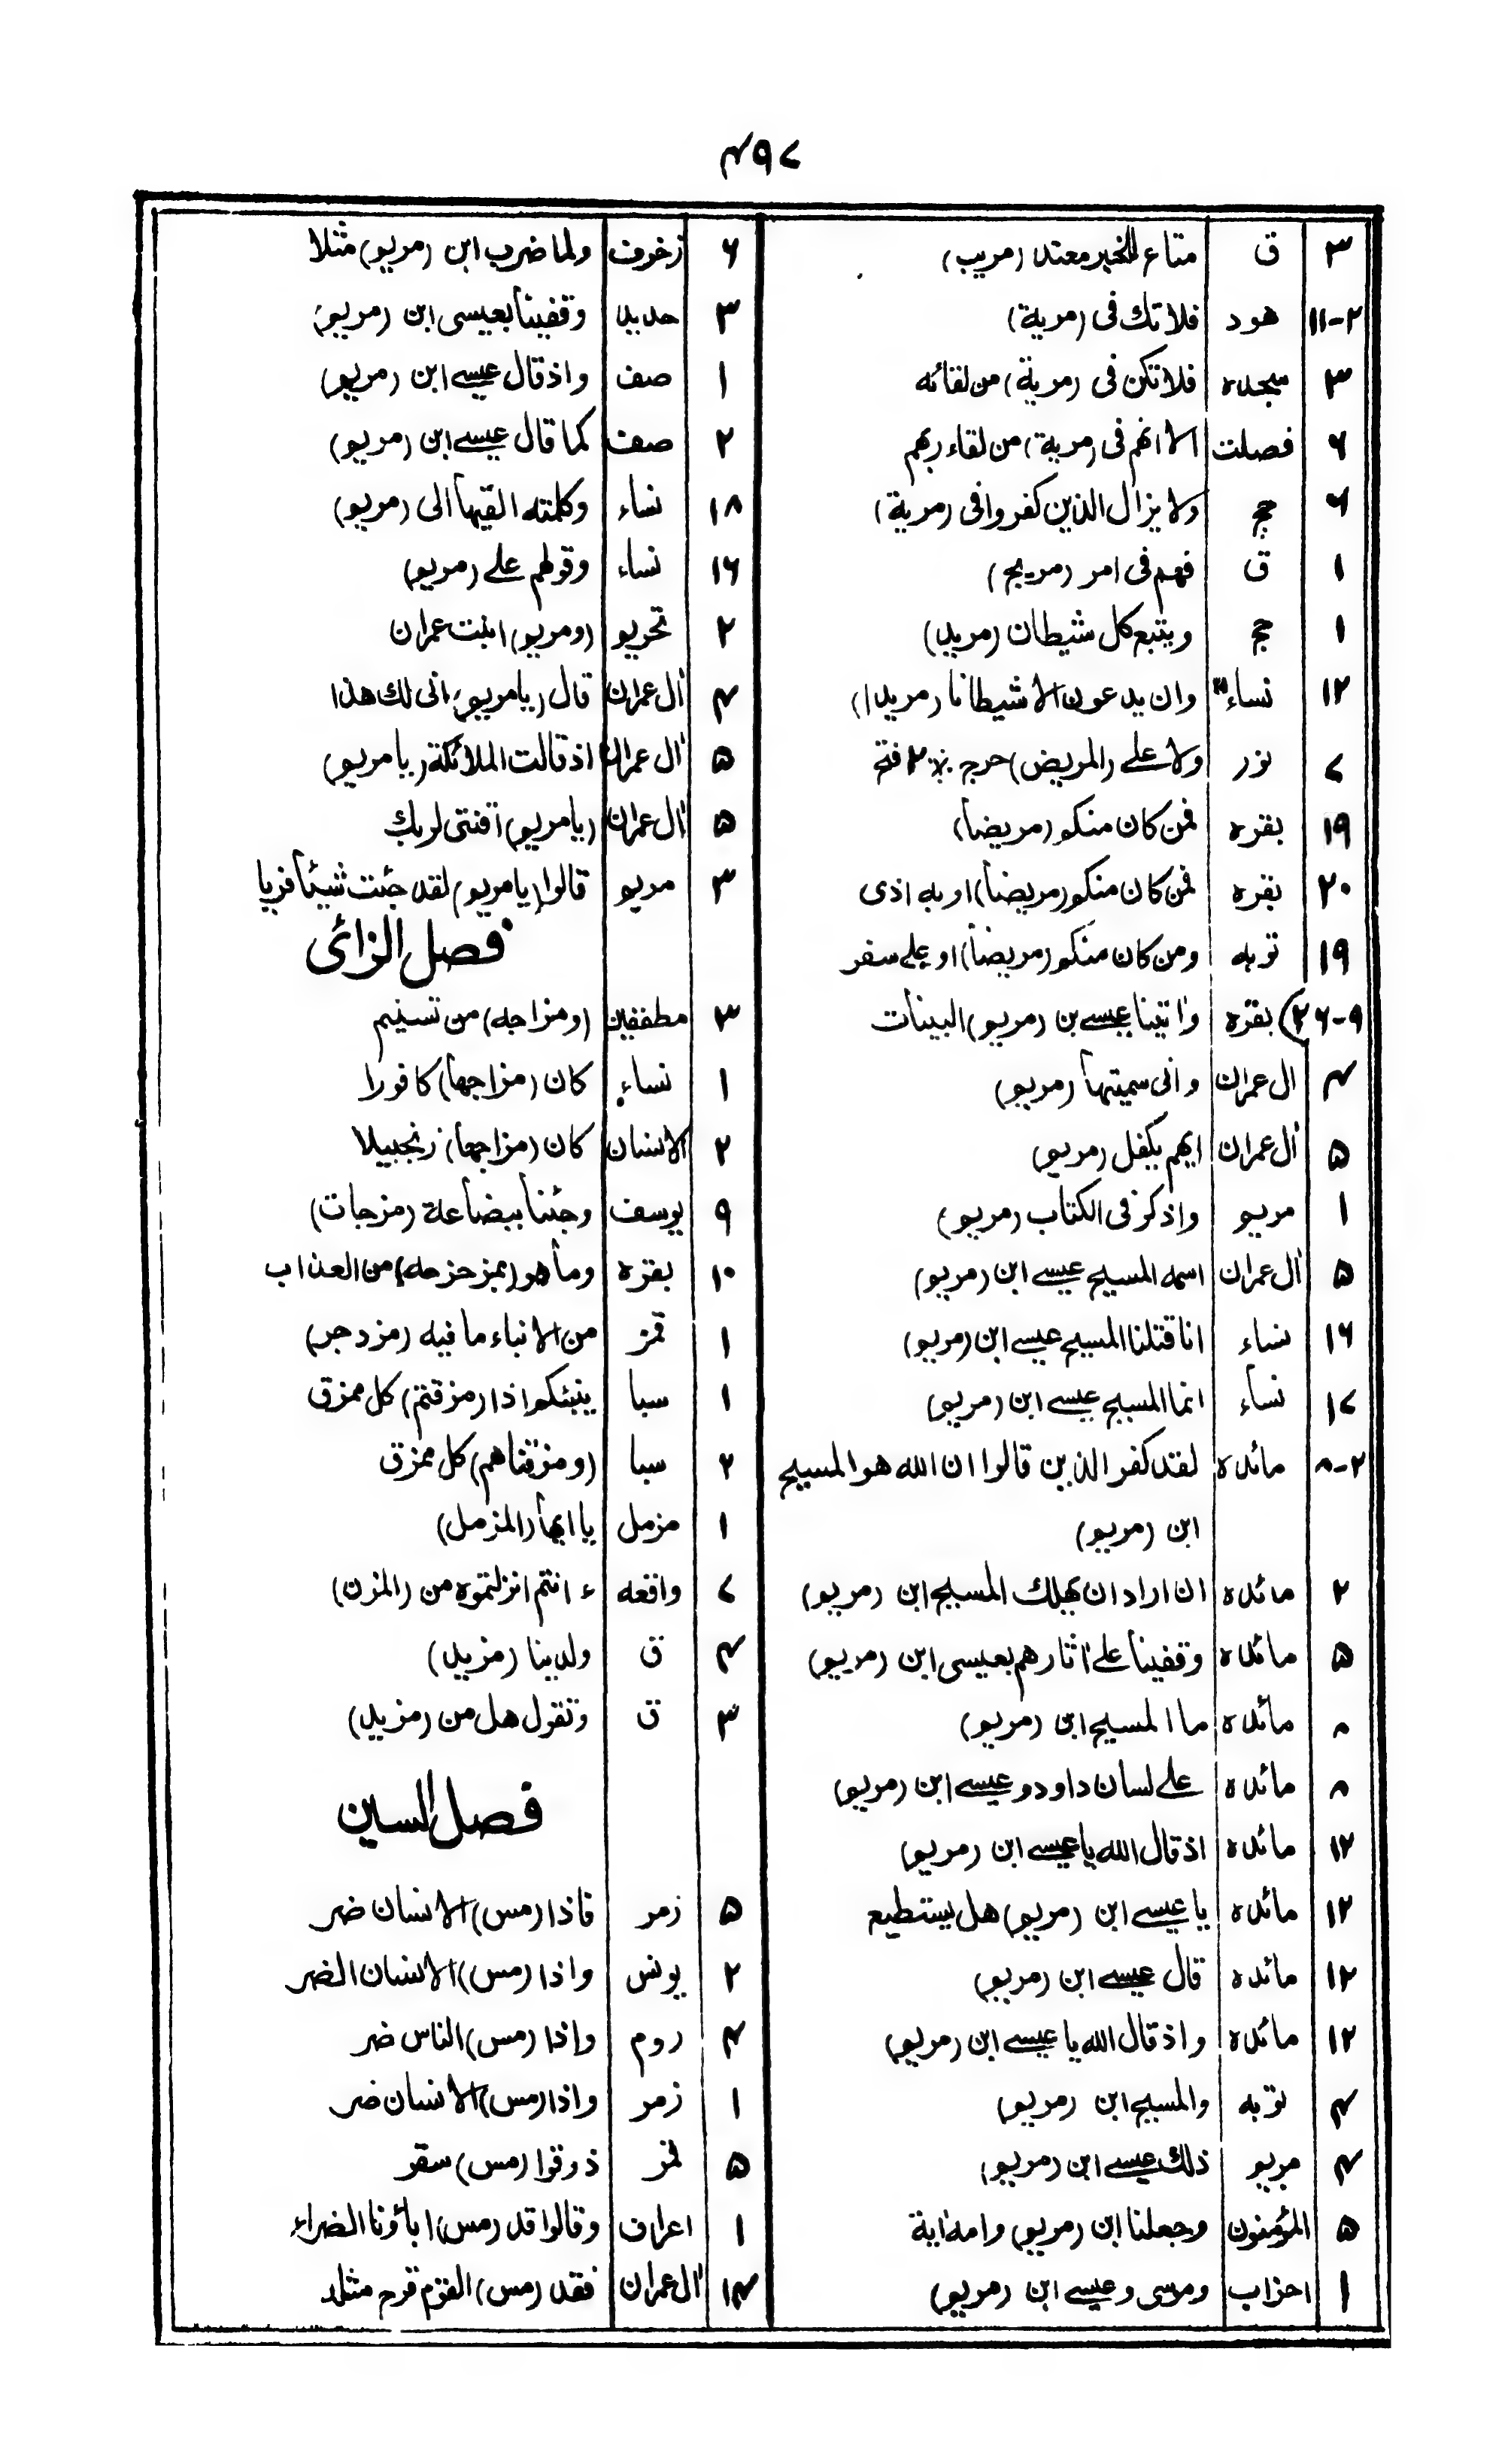 ۴۹۷
۳ ق متاع للخیر معتد (مریب)
۲-۱۱ هود فلا تك فی (مریة)
۳ سجده فلا تكن فی (مریة) من لقائه
۶ فصلت الا انهم فی (مریة) من لقاء ربهم
۶ حج ولا یزال الذین كفروا فی (مریة)
۱ ق فهم فی امر (مریج)
۱ حج ویتبع كل شیطان (مرید)
۱۲ نساء وان یدعون الا شیطانا (مریدا)
۷ نور ولا علے (المریض) حرج ٪ ۲ فتح
۱۹ بقره فمن كان منكم (مریضاً)
۲۰ بقره فمن كان منكم (مریضاً) او به اذی
۱۹ توبه ومن كان منكم (مریضاً) او علے سفر
۹-۲۶) بقره واتینا عیسے بن (مریم) البینات
۴ ال عمران وانی سمیتها (مریم)
۵ اٰل عمران ایهم یكفل (مریم)
۱ مریم واذكر فی الكتاب (مریم)
۵ اٰل عمران اسمه المسیح عیسے ابن (مریم)
۱۶ نساء انا قتلنا المسیح عیسے ابن (مریم)
۱۷ نساء انما المسیح عیسے ابن (مریم)
۲-۸ مائده لقد كفر الذین قالوا ان الله هو المسیح
ابن (مریم)
۲ مائده ان اراد ان یهلك المسیح ابن (مریم)
۵ مائده وقفینا علے اٰثارهم بعیسی ابن (مریم)
۸ مائده ما المسیح ابن (مریم)
۸ مائده علے لسان داود و عیسے ابن (مریم)
۱۲ مائده اذ قال الله یا عیسے ابن (مریم)
۱۲ مائده یا عیسے ابن (مریم) هل یستطیع
۱۲ مائده قال عیسے ابن (مریم)
۱۲ مائده واذ قال الله یا عیسے ابن (مریم)
۴ توبه والمسیح ابن (مریم)
۴ مریم ذلك عیسے ابن (مریم)
۵ المؤمنون وجعلنا ابن (مریم) وامه اٰیة
۱ احزاب وموسی وعیسے ابن (مریم)
۶ زخرف ولما ضرب ابن (مریم) مثلا
۳ حدید وقفینا بعیسی ابن (مریم)
۱ صف واذ قال عیسے ابن (مریم)
۲ صف كما قال عیسے ابن (مریم)
۱۸ نساء وكلمته القیها الی (مریم)
۱۶ نساء وقولهم علے (مریم)
۲ تحریم (ومریم) ابنت عمران
۴ اٰل عمران قال (یا مریم) انی لك هذا
۵ اٰل عمران اذ قالت الملائكة (یا مریم)
۵ اٰل عمران (یا مریم) اقنتی لربك
۳ مریم قالوا (یا مریم) لقد جئت شیئاً فریا
فصل الزائی
۳ مطففین (ومزاجه) من تسنیم
۱ نساء كان (مزاجها) كافورا
۲ الانسان كان (مزاجها) زنجبیلا
۹ یوسف وجئنا ببضاعة (مزجات)
۱۰ بقره وما هو (بمزحزحه) من العذاب
۱ قمر من الانباء ما فیه (مزدجر)
۱ سبا ینبئكم اذا (مزقتم) كل ممزق
۲ سبا (ومزقناهم) كل ممزق
۱ مزمل یا ایها (المزمل)
۷ واقعه ء انتم انزلتموه من (المزن)
۴ ق ولدینا (مزید)
۳ ق وتقول هل من (مزید)
فصل السین
۵ زمر فاذا (مس) الانسان ضر
۲ یونس واذا (مس) الانسان الضر
۴ روم واذا (مس) الناس ضر
۱ زمر واذا (مس) الانسان ضر
۵ قمر ذوقوا (مس) سقر
۱ اعراف وقالوا قد (مس) اباؤنا الضراء
۱۴ اٰل عمران فقد (مس) القوم قرح مثله